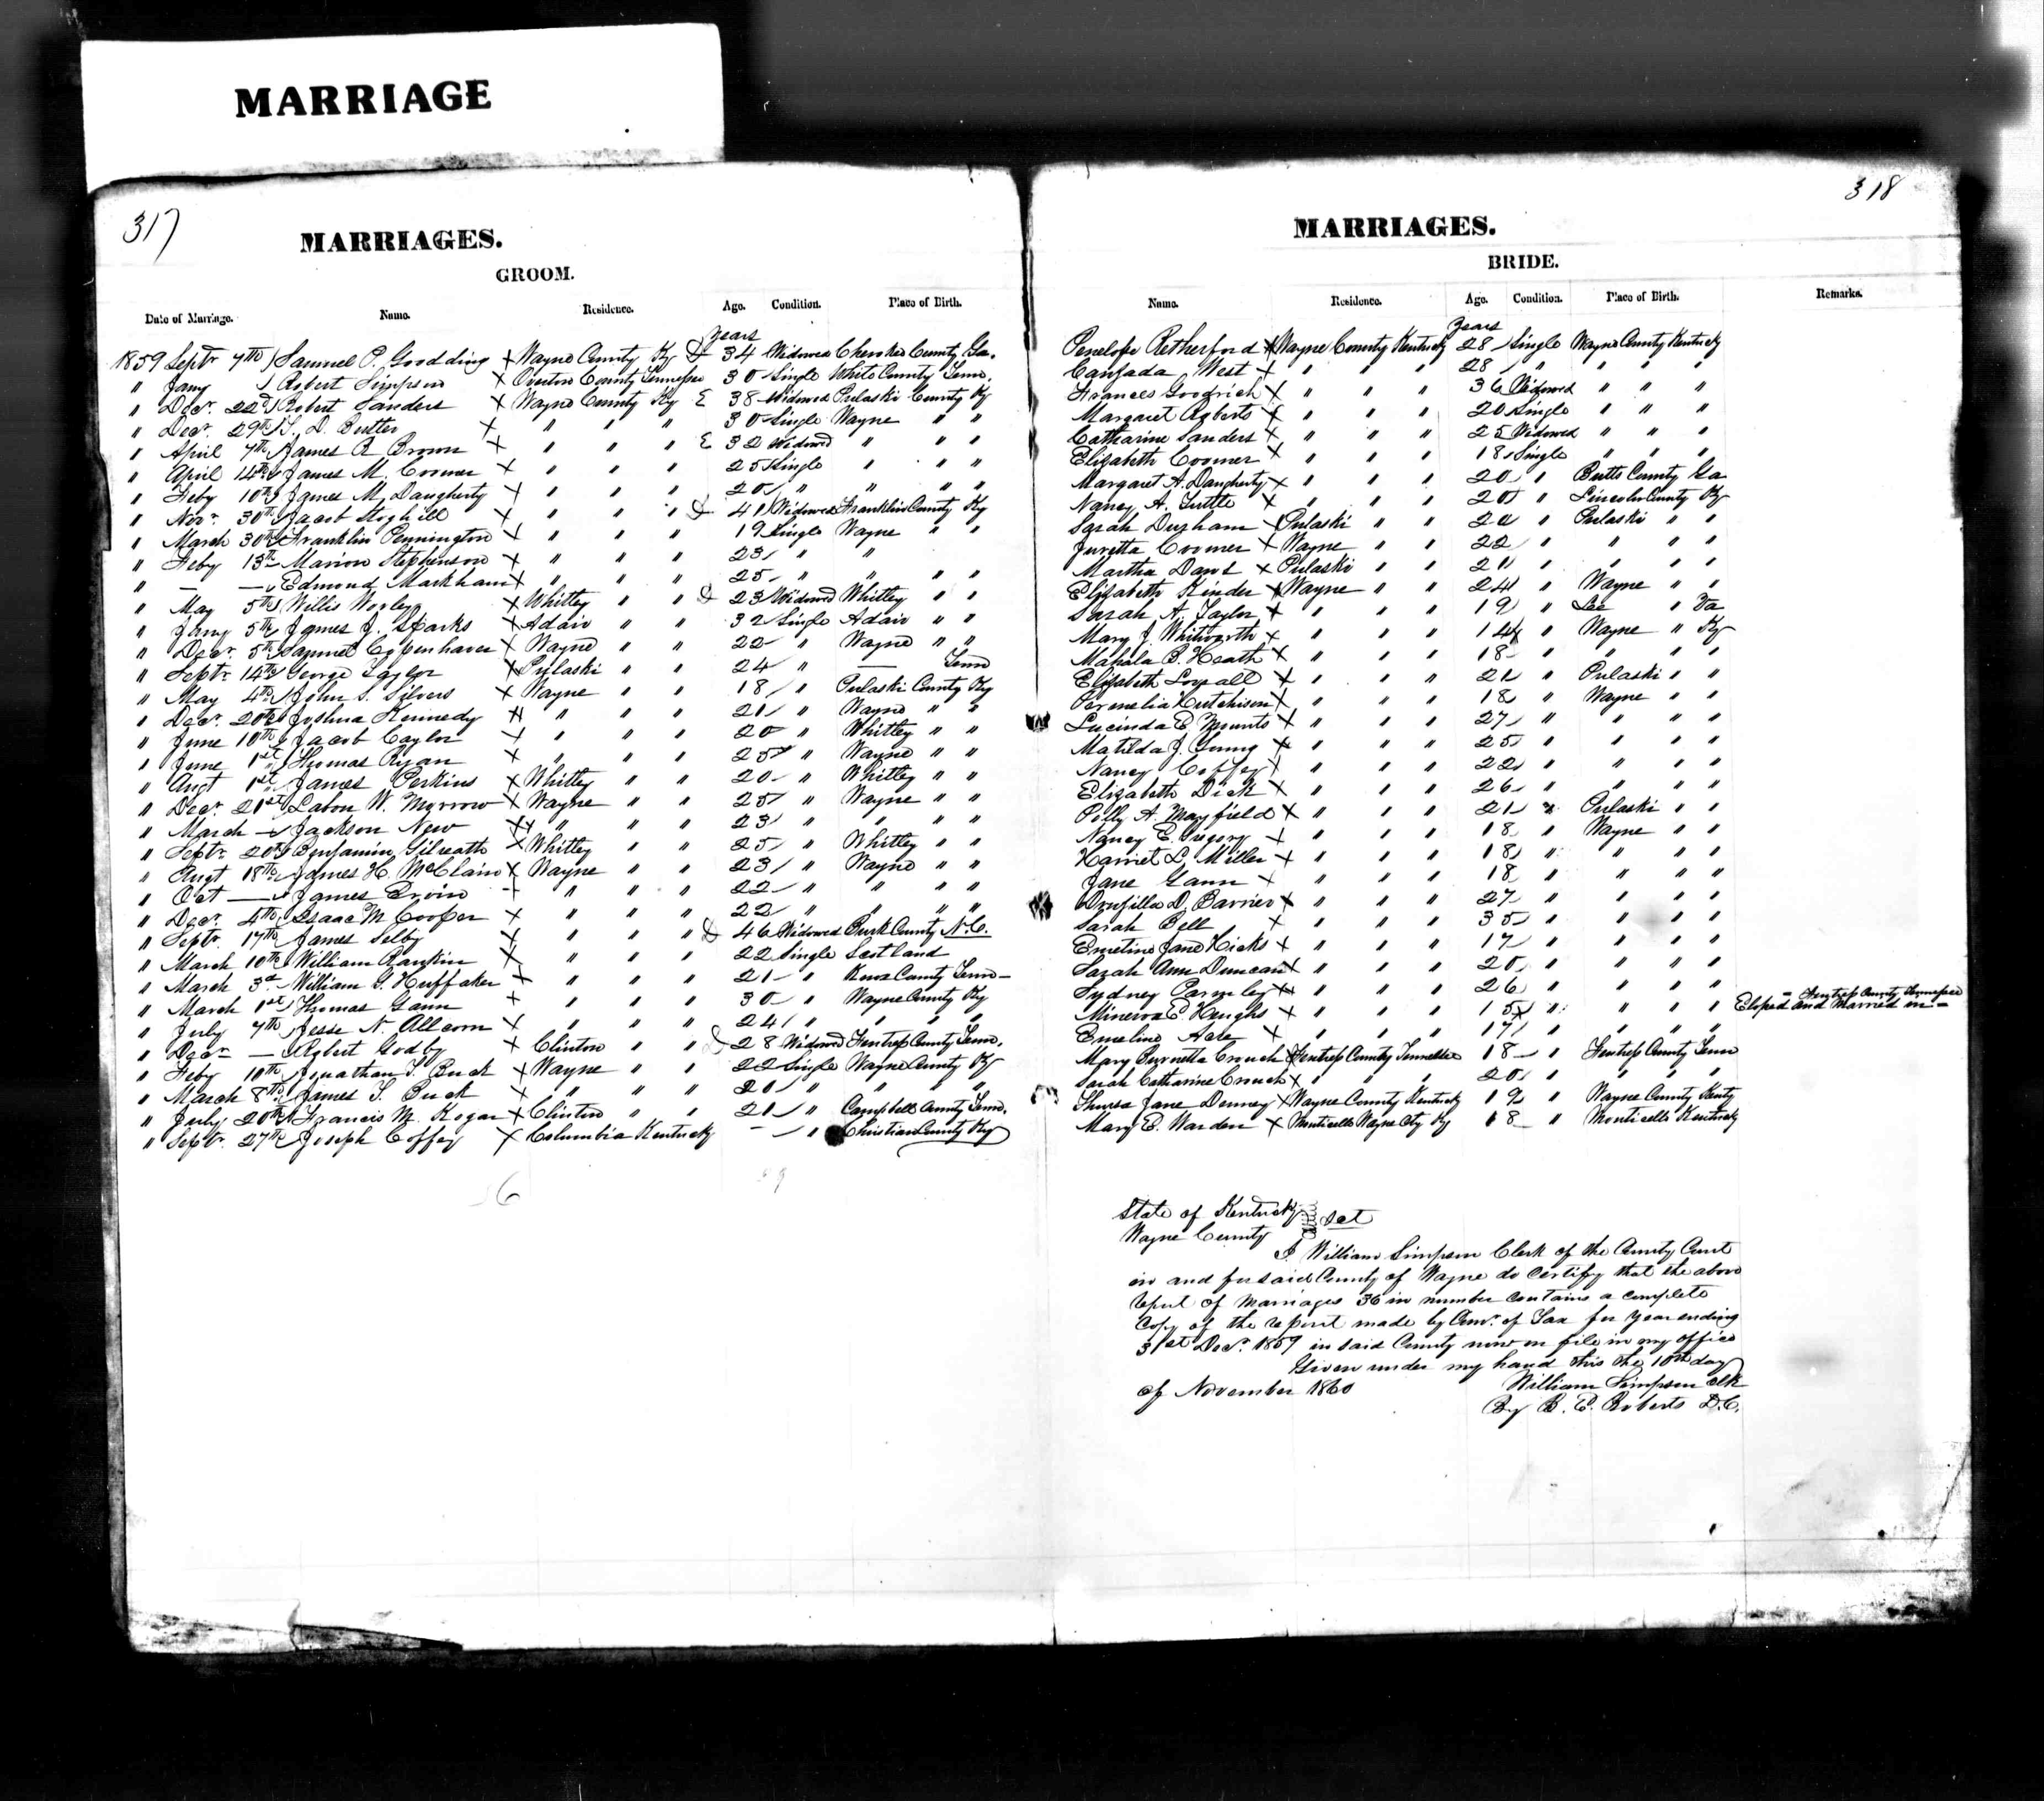 MARRIAGE
317
MARRIAGES.
GROOM.
Date of Marriage. Name. Residence. Age. Condition. Place of Birth.
Years
1859 Septr 7th Samuel P. Goodding X Wayne County Ky 34 Widowed Cherokee County Ga.
" Jany Robert Simpson X Overton County Tennessee 30 Single White County Tenn.
" Decr. 22d Robert Sanders X Wayne County Ky 38 Widowed Pulaski County Ky
" Decr. 29th D. Butler X " " " 30 Single Wayne " "
" April 7th James R Brown X " " " 32 Widowed " " "
" April 14th James M Coomer X " " " 25 Single " " "
" Feby 10th James M. Daugherty X " " " 20 " " " "
" Novr. 30th Jacob Stephill X " " " 41 Widowed Franklin County Ky
" March 30th Franklin Pennington X " " " 19 Single Wayne " "
" Feby 13th Marion Stephenson X " " " 23 " "
" — — Edmond Markham X " " " 25 " " " "
" May 5th Willis X Whitley " " 23 Widowed Whitley " "
" Jany 5th James J. Sparks X Adair " " 32 Single Adair " "
" Decr. 5th Samuel Coppenhaver X Wayne " " 22 " Wayne " "
" Septr. 14th George Taylor X Pulaski " " 24 " — Tenn
" May 4th John S. Silvers X Wayne " " 18 " Pulaski County Ky
" Decr. 20th Joshua Kennedy X " " " 21 " Wayne " "
" June 10th Jacob Caylor X " " " 20 " Whitley " "
" June 1st Thomas Ryan X " " " 25 " Wayne " "
" Augt 1st James Perkins X Whitley " " 20 " Whitley " "
" Decr. 21st Labon W. Morrow X Wayne " " 25 " Wayne " "
" March — Jackson New X " " " 23 " " " "
" Septr. 20th Benjamin Gilreath X Whitley " " 25 " Whitley " "
" Augt 18th James H. McClain X Wayne " " 23 " Wayne " "
" Oct — James Ervin " " " 22 " " " "
" Decr. 4th Isaac M Cooper X " " " 22 " " " "
" Septr. 17th James Selby X " " " 46 Widowed Burk County N.C.
" March 10th William Rankin X " " " 22 Single Scotland
" March 3d William G. Huffaker X " " " 21 " Knox County Tenn—
" March 1st Thomas Gann X " " " 30 " Wayne County Ky
" July 7th Jesse N. Allcorn X " " " 24 " " " "
" Decr — Robert Godby X Clinton " " 28 Widowed Fentress County Tenn.
" Feby 10th Jonathan T. Buck X Wayne " " 22 Single Wayne County Ky
" March 8th James S. Buck X " " " 20 " " " "
" July 20th Francis M. Hogan X Clinton " " 21 " Campbell County Tenn.
" Septr. 27th Joseph Coffey X Columbia Kentucky — " Christian County Ky
36
318
MARRIAGES.
BRIDE.
Name. Residence. Age. Condition. Place of Birth. Remarks.
Years
Penelope Retherford X Wayne County Kentucky 28 Single Wayne County Kentucky
Canzada West X " " " 28 " " " "
Frances Goodrich X " " " 36 Widowed " " "
Margaret Roberts X " " " 20 Single " " "
Catharine Sanders X " " " 25 Widowed " " "
Elizabeth Coomer X " " " 18 Single " " "
Margaret A. Daugherty X " " " 20 " Butts County Ga
Nancy A. Tuttle X " " " 20 " Lincoln County Ky
Sarah Durham X Pulaski " " 20 " Pulaski " "
Juretta Coomer X Wayne " " 22 " " " "
Martha Davis X Pulaski " " 21 " " " "
Elizabeth Kinder X Wayne " " 24 " Wayne " "
Sarah A. Taylor X " " " 19 " Lee " Va
Mary J. Whitworth X " " " 14 " Wayne " Ky
Mahala B. Heath X " " " 18 " " " "
Elizabeth Loyall X " " " 21 " Pulaski " "
Permelia Hutchison X " " " 18 " Wayne " "
Lucinda E Mounts X " " " 27 " " " "
Matilda J. Young X " " " 25 " " " "
Nancy Coffey X " " " 22 " " " "
Elizabeth Dick X " " " 26 " " " "
Polly A. Mayfield X " " " 21 " Pulaski " "
Nancy E Gregory X " " " 18 " Wayne " "
Harriet L. Miller X " " " 18 " " " "
Jane Gann X " " " 18 " " " "
Drusilla D. Barrier X " " " 27 " " " "
Sarah Bell X " " " 35 " " " "
Emeline Jane Hicks X " " " 17 " " " "
Sarah Ann Duncan X " " " 20 " " " "
Sydney Parmley X " " " 26 " " " "
Minerva E Hughs X " " " 15 " " " " Eloped and Married in — Fentress County Tennessee
Emeline Acre X " " " 17 " " " "
Mary Burnetta Crouch X Fentress County Tennessee 18 " Fentress County Tenn
Sarah Catharine Crouch X " " " 20 " " " "
Thursa Jane Denney X Wayne County Kentucky 19 " Wayne County Kenty
Mary E. Warden X Monticello Wayne Cty Ky 18 " Monticello Kentucky
State of Kentucky
Wayne County Sct
I William Simpson Clerk of the County Court
in and for said County of Wayne do certify that the above
report of Marriages 36 in number contains a complete
Copy of the report made by Comr. of Tax for year ending
31st Decr. 1859 in said County now on file in my office
Given under my hand this the 10th day
of November 1860
William Simpson clk
By B. E. Roberts D.C.